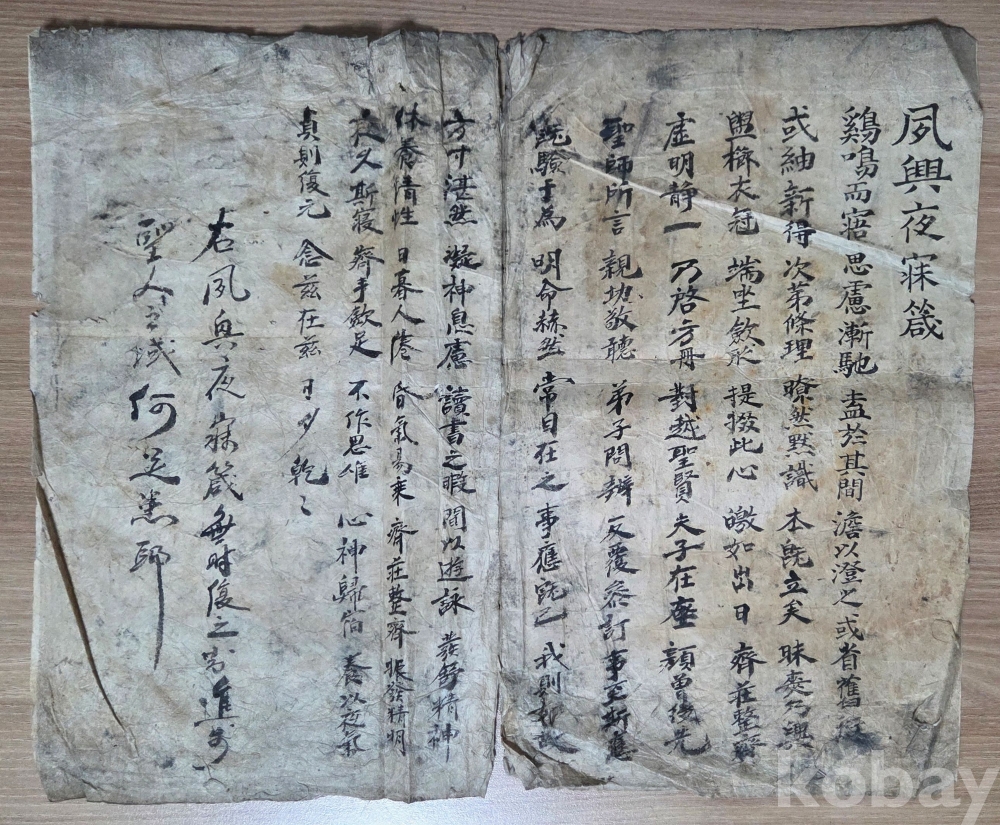 夙興夜寐箴
鷄鳴而寤 思慮漸馳 盍於其間 澹以澄之 或省舊愆
或紬新得 次第條理 瞭然黙識 本旣立矣 昧爽乃興
盥櫛衣冠 端坐歛形 提掇此心 皦如出日 齊莊整齊
虛明静一 乃啓方冊 對越聖賢 夫子在座 顔曾後先
聖師所言 親切敬聽 弟子問辨 反覆叅訂 事至斯應
則驗于爲 明命赫然 常目在之 事應旣已 我則如故
方寸湛然 凝神息慮 讀書之暇 間以遊詠 發舒精神
休養情性 日暮人倦 昏氣易乘 齊莊整齊 振發精明
夜久斯寢 齊手歛足 不作思惟 心神歸宿 養以夜氣
貞則復元 念玆在玆 日夕乾〻
右夙興夜寐箴 時復之 進 
聖人之域 何足患耶
kobay